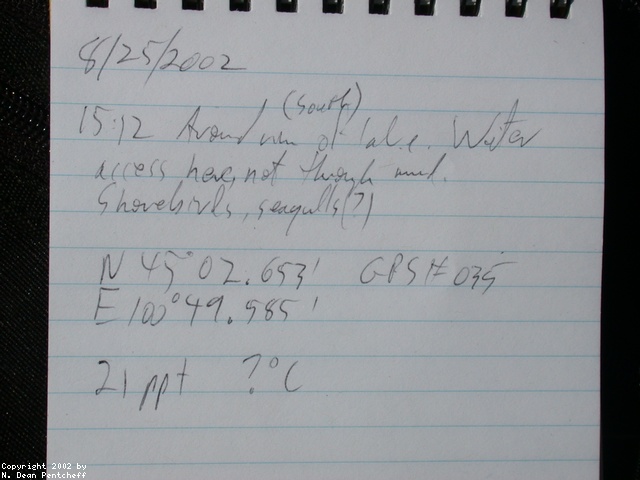 8/25/2002
(South)
15:12 Around rim of lake. Water
access here, not through mud.
Shorebirds, seagulls(?)
N 45° 02.653' GPS# 035
E 100° 49.585'
21 ppt ?°C
Copyright 2002 by
N. Dean Pentcheff